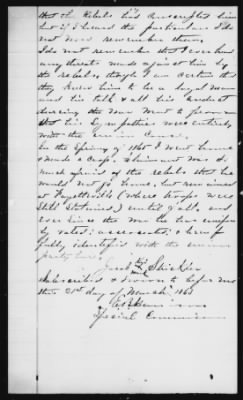 that the Rebels had conscripted him
but if I heard the particulars I do
not now remember them.
I do not remember that I ever heard
any threats made against him by
the rebels, though I am certain that
they knew him to be a loyal man
and his talk & all his conduct
during the war went to prove
that his sympathies were entirely
with the union Cause.
In the Spring of 1865 I went home
& made a crop. Claimant was so
much afraid of the rebels that he
would not go home, but remained
at Fayetteville (where troops were
still stationed) until fall, and
ever since the war he has uniform
ly voted, associated, & been
fully identified with the union
party here.
Jacob Strickler
mark
Subscribed & sworn to before me
this 21st day of March 186
Special Commissioner